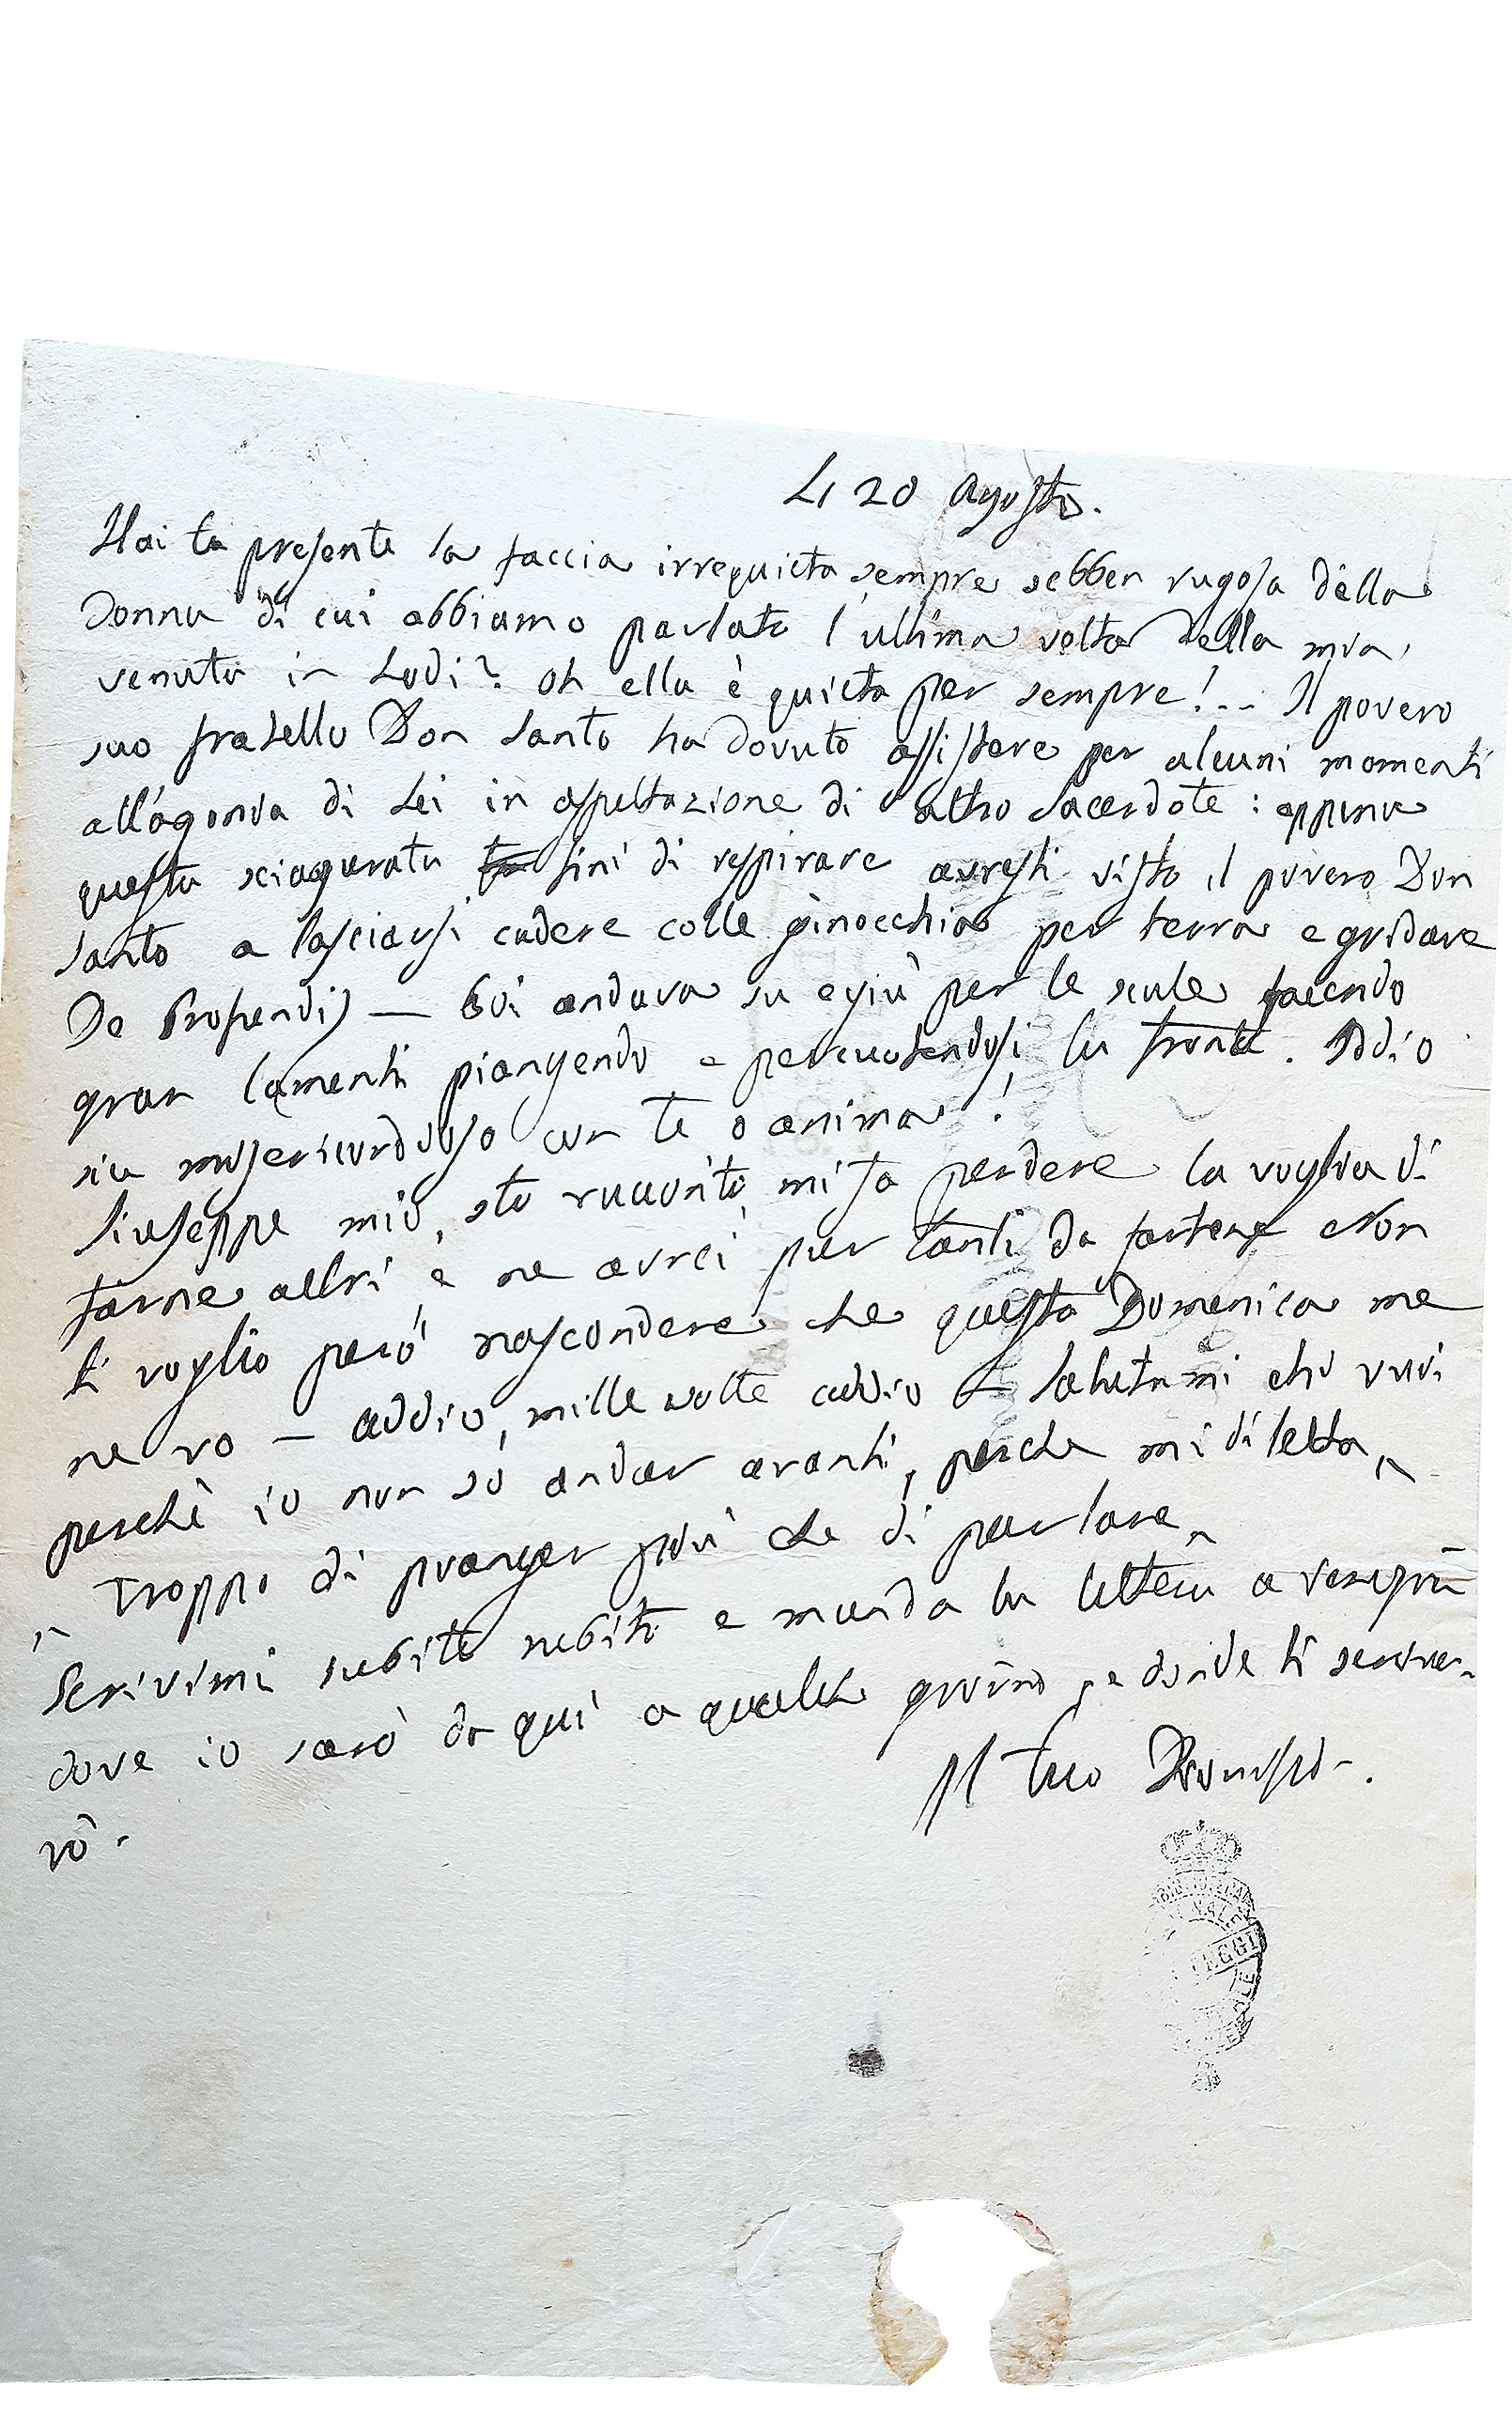 Li 20 Agosto.
Hai tu presente la faccia irrequieta sempre sebben rugosa della
Donna di cui abbiamo parlato l'ultima volta della mia
venuta in Lodi? Oh ella è quieta per sempre!... Il povero
suo fratello Don Santo ha dovuto assistere per alcuni momenti
all'agonia di Lei in aspettazione di altro Sacerdote: appena
questa sciagurata finì di respirare avresti visto il povero Don
Santo a lasciarsi cadere colle ginocchia per terra e gridare
De Profundis — Poi andava su e giù per le scale facendo
gran lamenti piangendo e percuotendosi la fronte. Iddio
sia misericordioso con te o anima!
Giuseppe mio, sto racconto mi fa perdere la voglia di
farne altri e ne avrei pur tanti da fartene Non
ti voglio però nascondere che questa Domenica me
ne vo — addio, mille volte addio — Salutami chi vuoi
perchè io non sò andar avanti, perche mi diletta,
Troppo di pianger più che di parlare
Scrivimi subito subito e manda la lettera a
dove io sarò da quì a qualche giorno e donde ti scrive-
rò.
Il tuo
REGGI